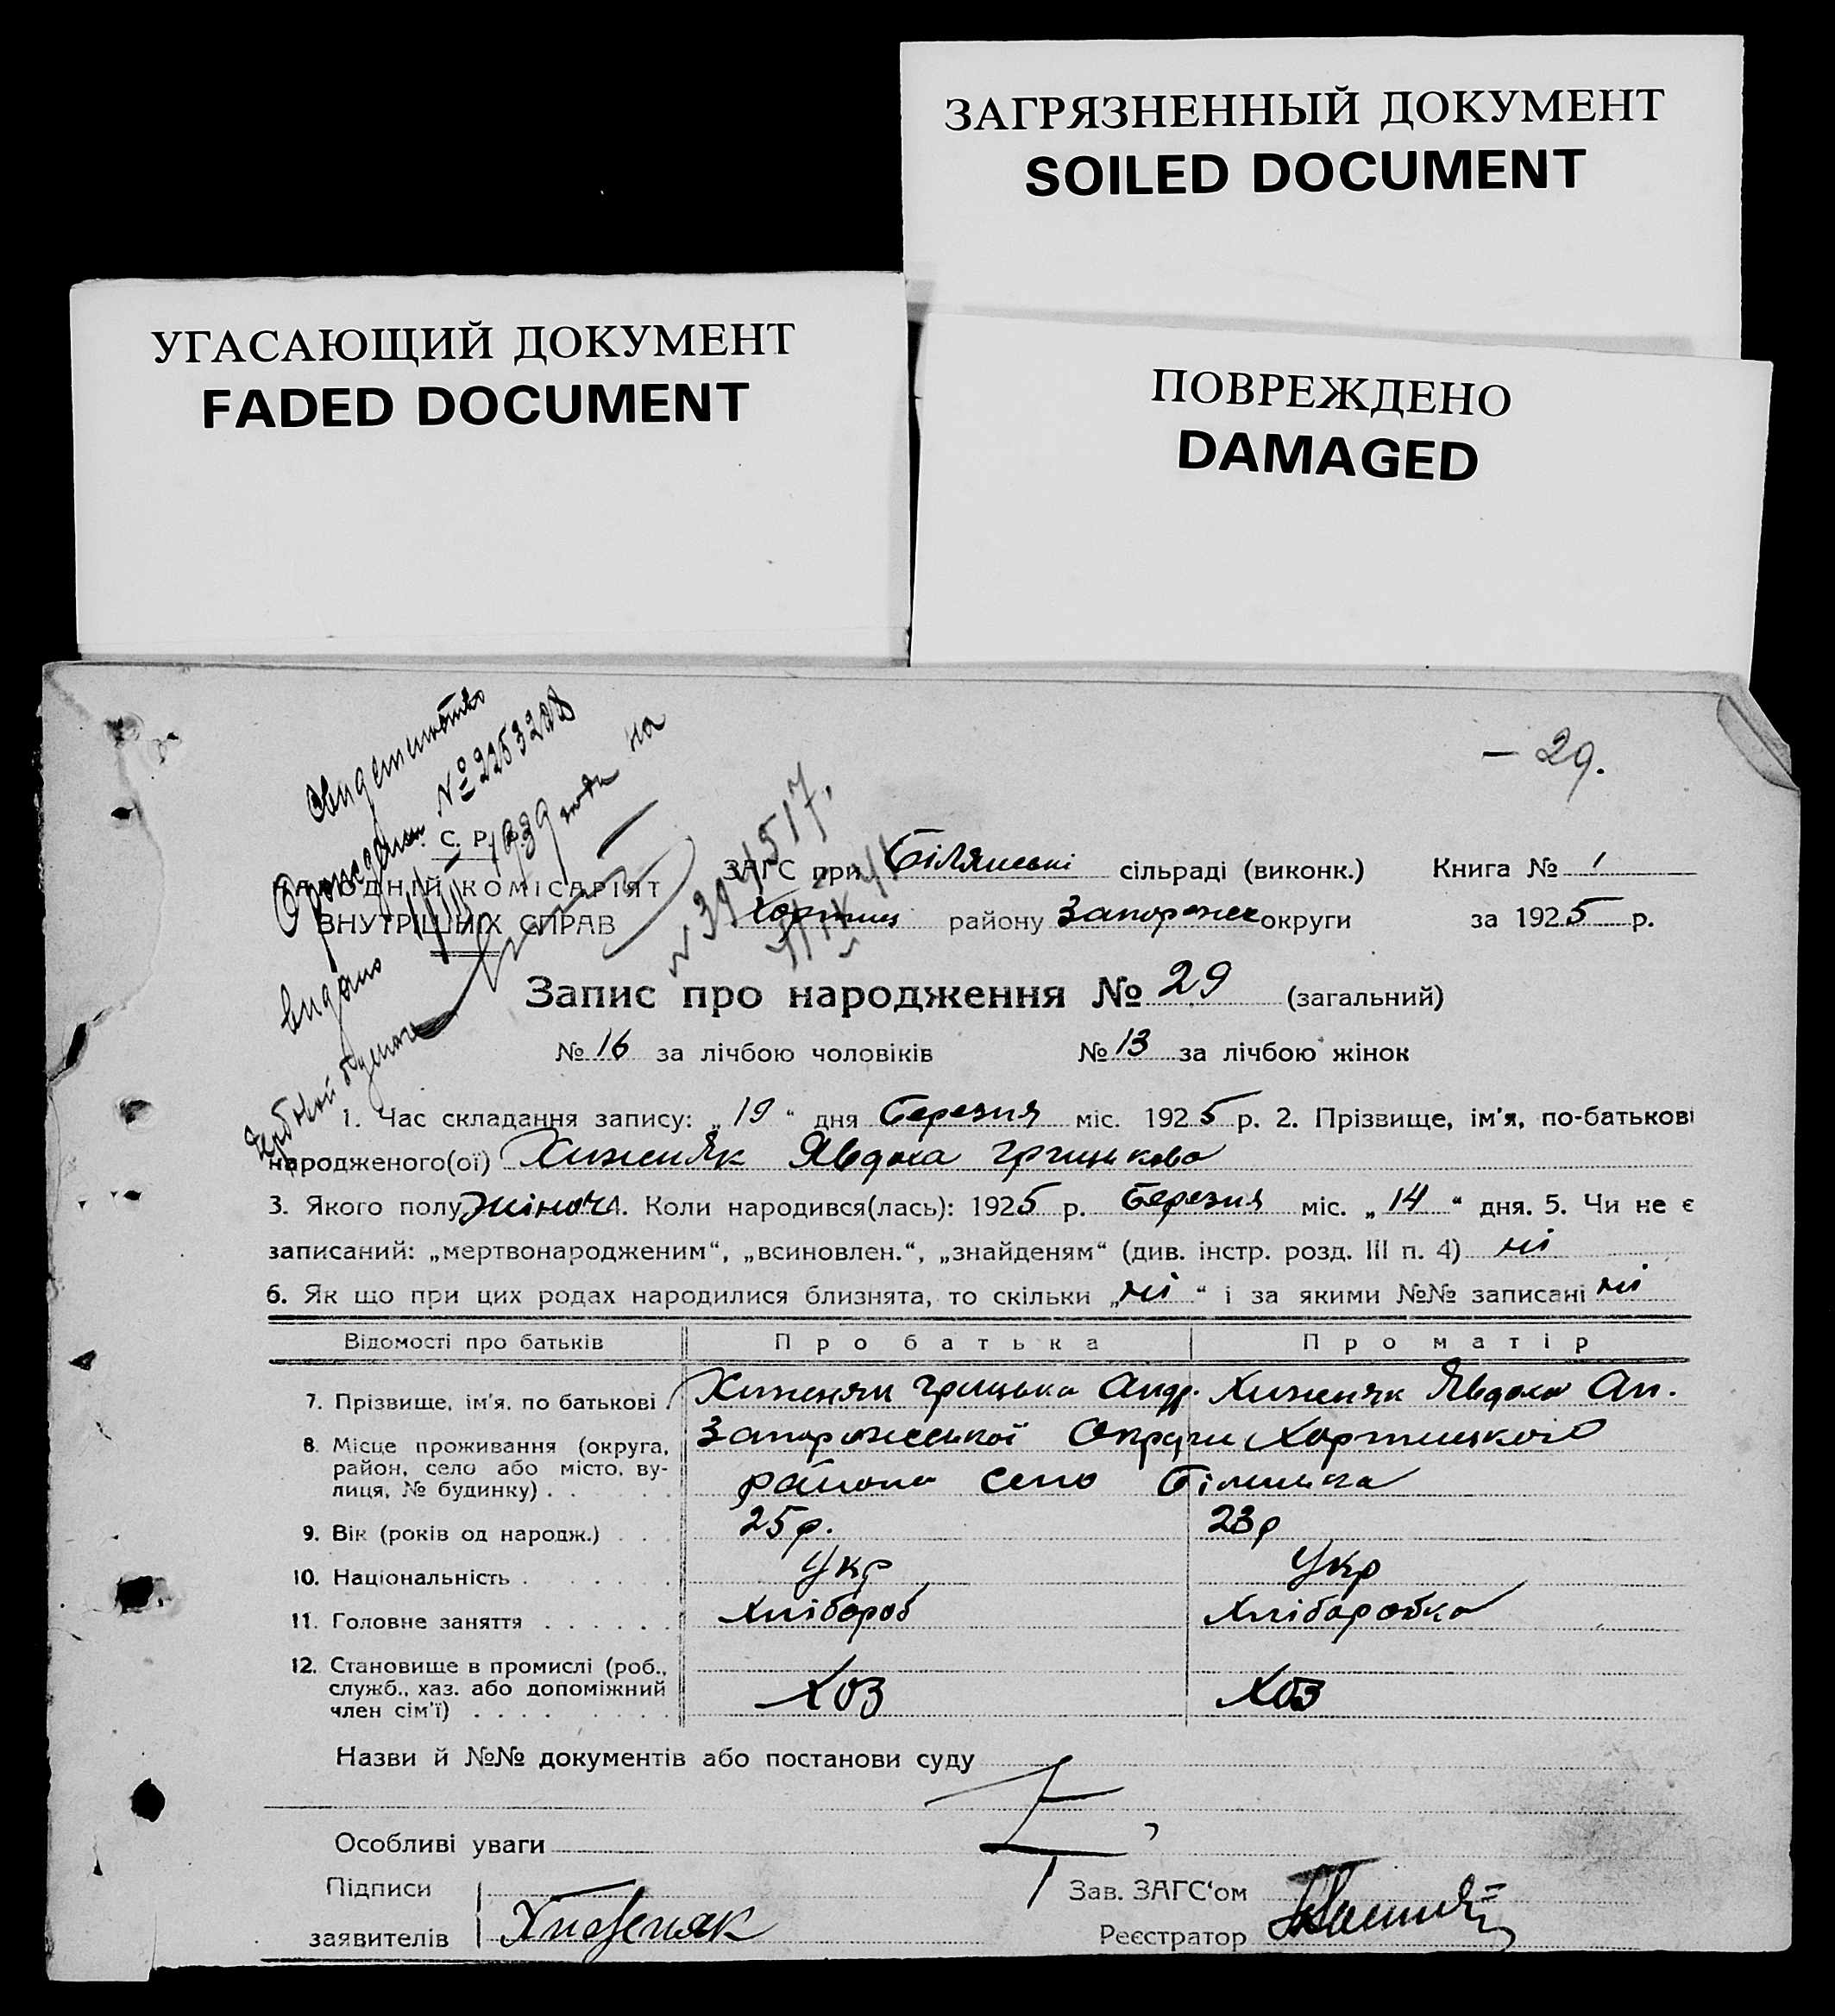 ЗАГРЯЗНЕННЫЙ ДОКУМЕНТ
SOILED DOCUMENT
УГАСАЮЩИЙ ДОКУМЕНТ
FADED DOCUMENT
ПОВРЕЖДЕНО
DAMAGED
– 29.
на
1939 года
видано
С. Р. Р.
КОМІСАРІЯТ
ВНУТРІШНІХ СПРАВ
ЗАГС при сільраді (виконк.) Книга № 1
Хортиц району Запорожск округи за 1925 р.
Запис про народження № 29 (загальний)
№ 16 за лічбою чоловіків № 13 за лічбою жінок
1. Час складання запису: „ 19 “ дня Березня міс. 1925 р. 2. Прізвище, ім'я, по-батькові
народженого(ої) Хиженяк Явдоха Грицькова
3. Якого полу жіноч 4. Коли народився(лась): 1925 р. Березня міс. „ 14 “ дня. 5. Чи не є
записаний: „мертвонародженим“, „всиновлен.“, „знайденям“ (див. інстр. розд. III п. 4) ні
6. Як що при цих родах народилися близнята, то скільки „ ні “ і за якими №№ записані ні
Відомості про батьків Про батька Про матір
7. Прізвище, ім'я, по батькові . Хиженяк Грицько Андр. Хиженяк Явдоха Ан.
8. Місце проживання (округа, Запорожської Округи Хортицкого
район, село або місто, ву- района село
лиця, № будинку) . . . . .
9. Вік (років од народж.) . . . 25 р. 23 р
10. Національність . . . . . . Укр Укр
11. Головне заняття . . . . . . Хлібороб Хліборобка
12. Становище в промислі (роб.,
служб., хаз. або допоміжний Хоз Хоз
член сім'ї) . . . . . . . . .
Назви й №№ документів або постанови суду
Особливі уваги
Підписи Зав. ЗАГС'ом
заявителів Хиженяк Реєстратор